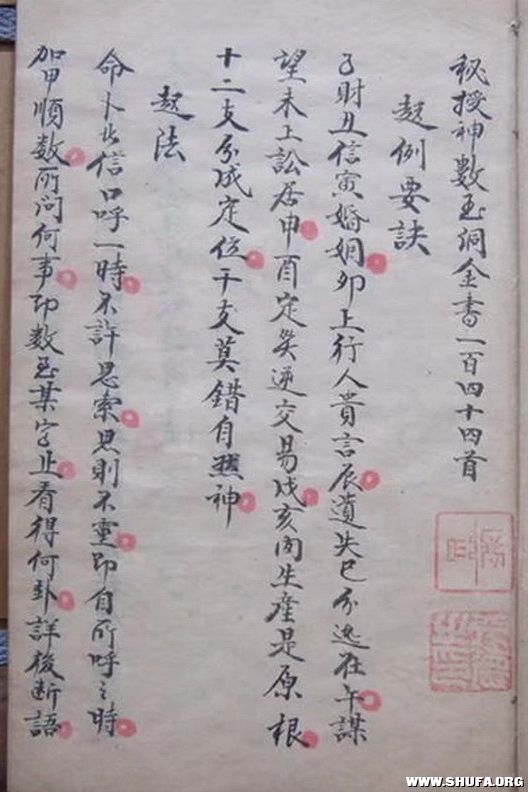 秘授神数玉洞金書一百四十四首
起例要訣
子財丑信寅婚姻卯上行人貴言辰遺失巳分逃在午謀
望未上訟居申酉定災逓交易戌亥問生産是原根
十二支分成定位干支莫錯自蹀神
起法
命卜此信口呼一時不許思索思則不灵即自所呼之時
加甲順数所问何事即数至某字止看得何卦詳後断語
WWW.SHUFA.ORG